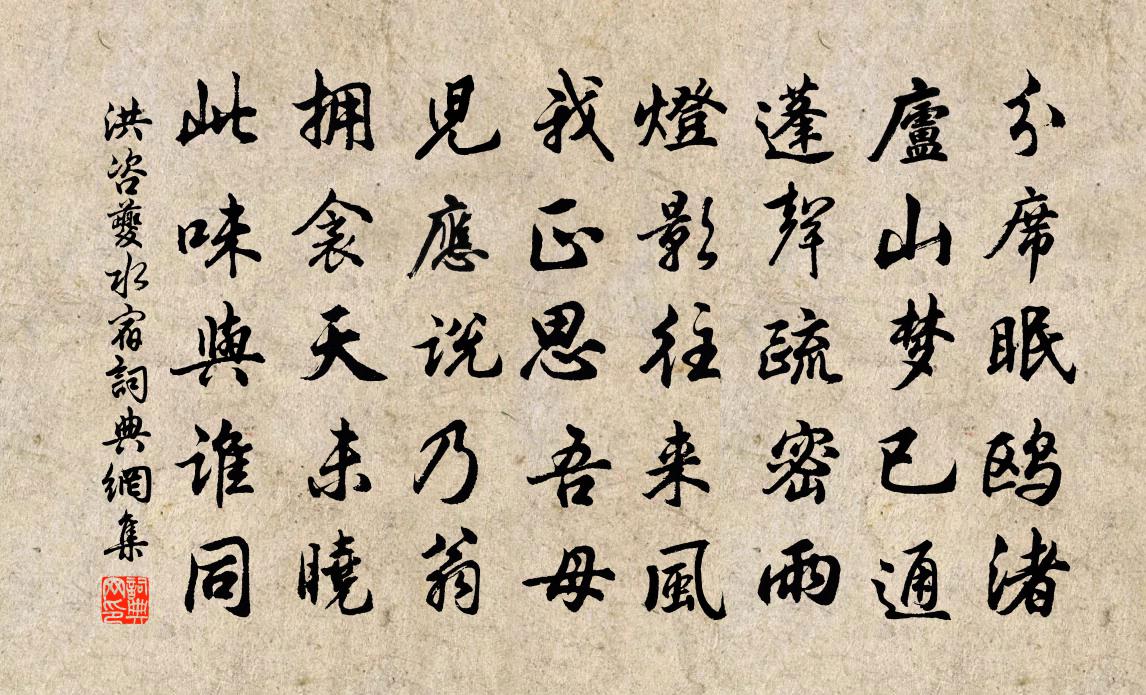 分席眠鸥渚
廬山梦已通
蓬聲疏密雨
燈影往来風
我正思吾母
児應说乃翁
拥衾天未曉
此味與谁同
洪咨夔水宿詞典網集
詞典网印